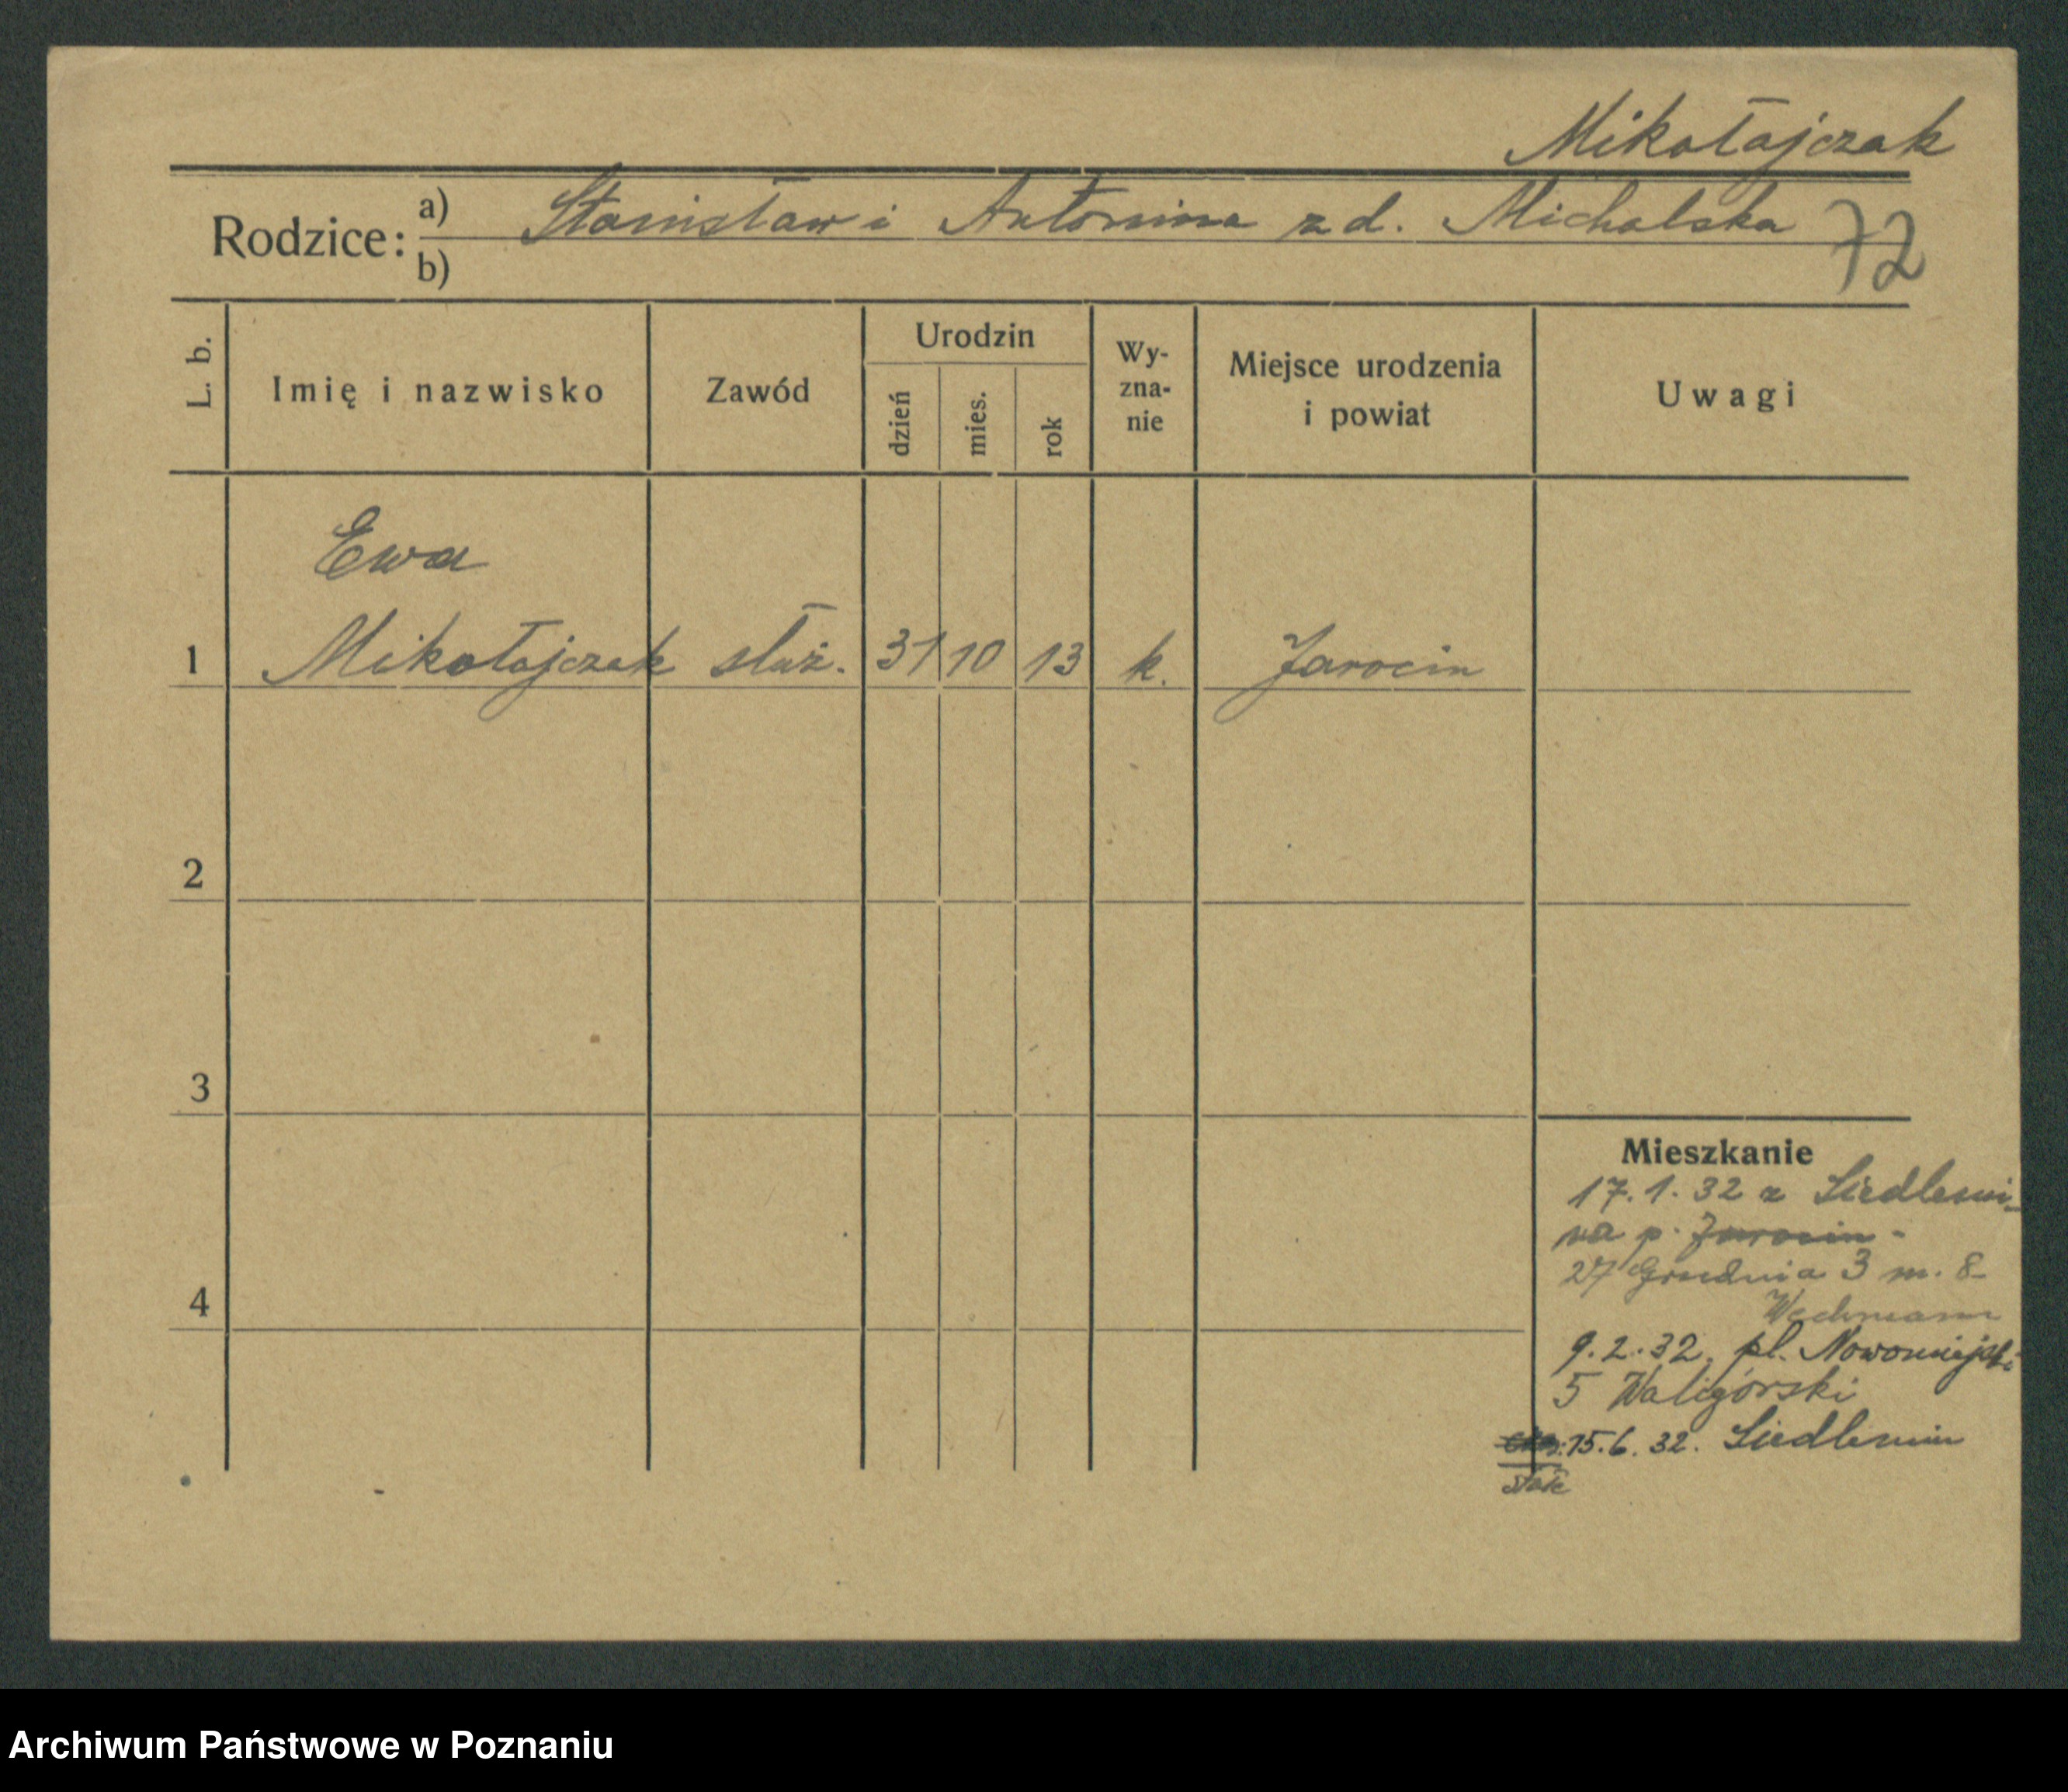 Mikołajczak
Rodzice: a) Stanisław i Antonina z d. Michalska 72
b)
L. b. Imię i nazwisko Zawód Urodzin dzień mies. rok Wy-zna-nie Miejsce urodzenia i powiat Uwagi
Ewa
1 Mikołajczak służ. 31 10 13 k. Jarocin
2
3
Mieszkanie
17.1.32 z Siedlemi-
na p. Jarocin -
27 Grudnia 3 m. 8-
4
9.2.32. pl. Nowomiejski
5 Waligórski
15.6.32. Siedlemin
stałe
Archiwum Państwowe w Poznaniu